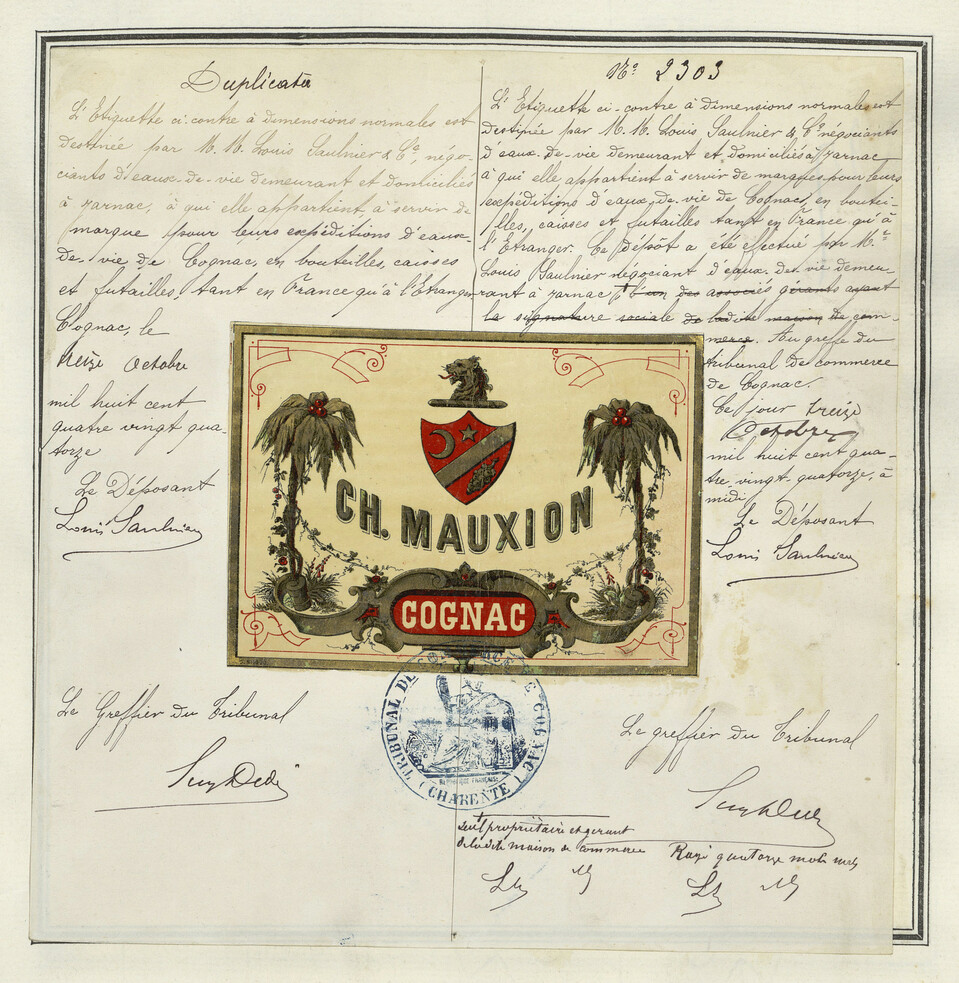 Duplicata
L'Etiquette ci-contre à dimensions normales est
destinée par M.M. Louis Saulnier & Cie, négo-
ciants d'eaux-de-vie demeurant et domiciliés
à Jarnac, à qui elle appartient, à servir de
marque pour leurs expéditions d'eaux-
de-vie de Cognac, en bouteilles, caisses
et futailles, tant en France qu'à l'Etranger
Cognac, le
treize Octobre
mil huit cent
quatre vingt qua-
torze
Le Déposant
Louis Saulnier
Le Greffier du Tribunal
No 2303
L'Etiquette ci-contre à dimensions normales est
destinée par M.M. Louis Saulnier & Cie négociants
d'eaux-de-vie demeurant et domiciliés à Jarnac
à qui elle appartient à servir de marque pour leurs
expéditions d'eaux-de-vie de Cognac, en boutei-
lles, caisses et futailles tant en France qu'à
l'Etranger. Ce dépôt a été effectué par Mr
Louis Saulnier négociant d'eaux-de-vie demeu
rant à Jarnac + l'un des associés gérants ayant
la signature sociale de ladite maison de com-
merce. Au greffe du
tribunal de commerce
de Cognac.
Ce jour treize
Octobre
mil huit cent qua-
tre-vingt-quatorze, à
midi
Le Déposant
Louis Saulnier
Le greffier du Tribunal
CH. MAUXION
COGNAC
TRIBUNAL DE COMMERCE DE COGNAC
REPUBLIQUE FRANÇAISE
(CHARENTE)
+ seul propriétaire et gérant
de ladite maison de commerce
Rayé quatorze mots nuls